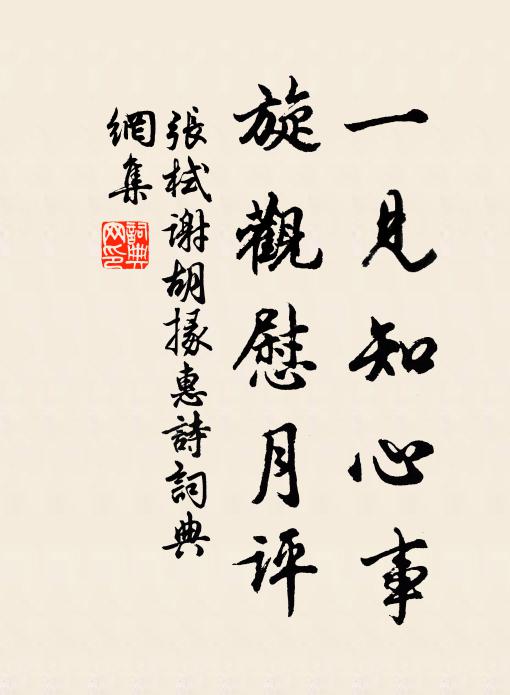 一見知心事
旋觀慰月評
張栻謝胡掾惠詩詞典
網集
詞典
网印